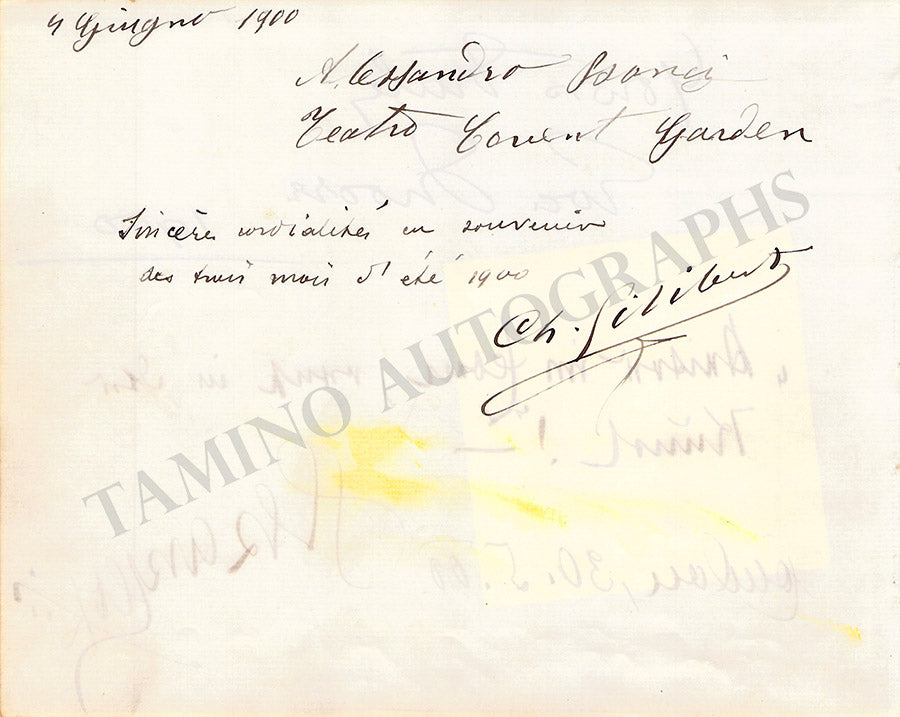 4 Giugno 1900
Alessandro Bonci
Teatro Covent Garden
Sincères cordialités en souvenir
des trois mois d'été 1900
Ch. Gilibert
TAMINO AUTOGRAPHS
London, 30. 5. 00